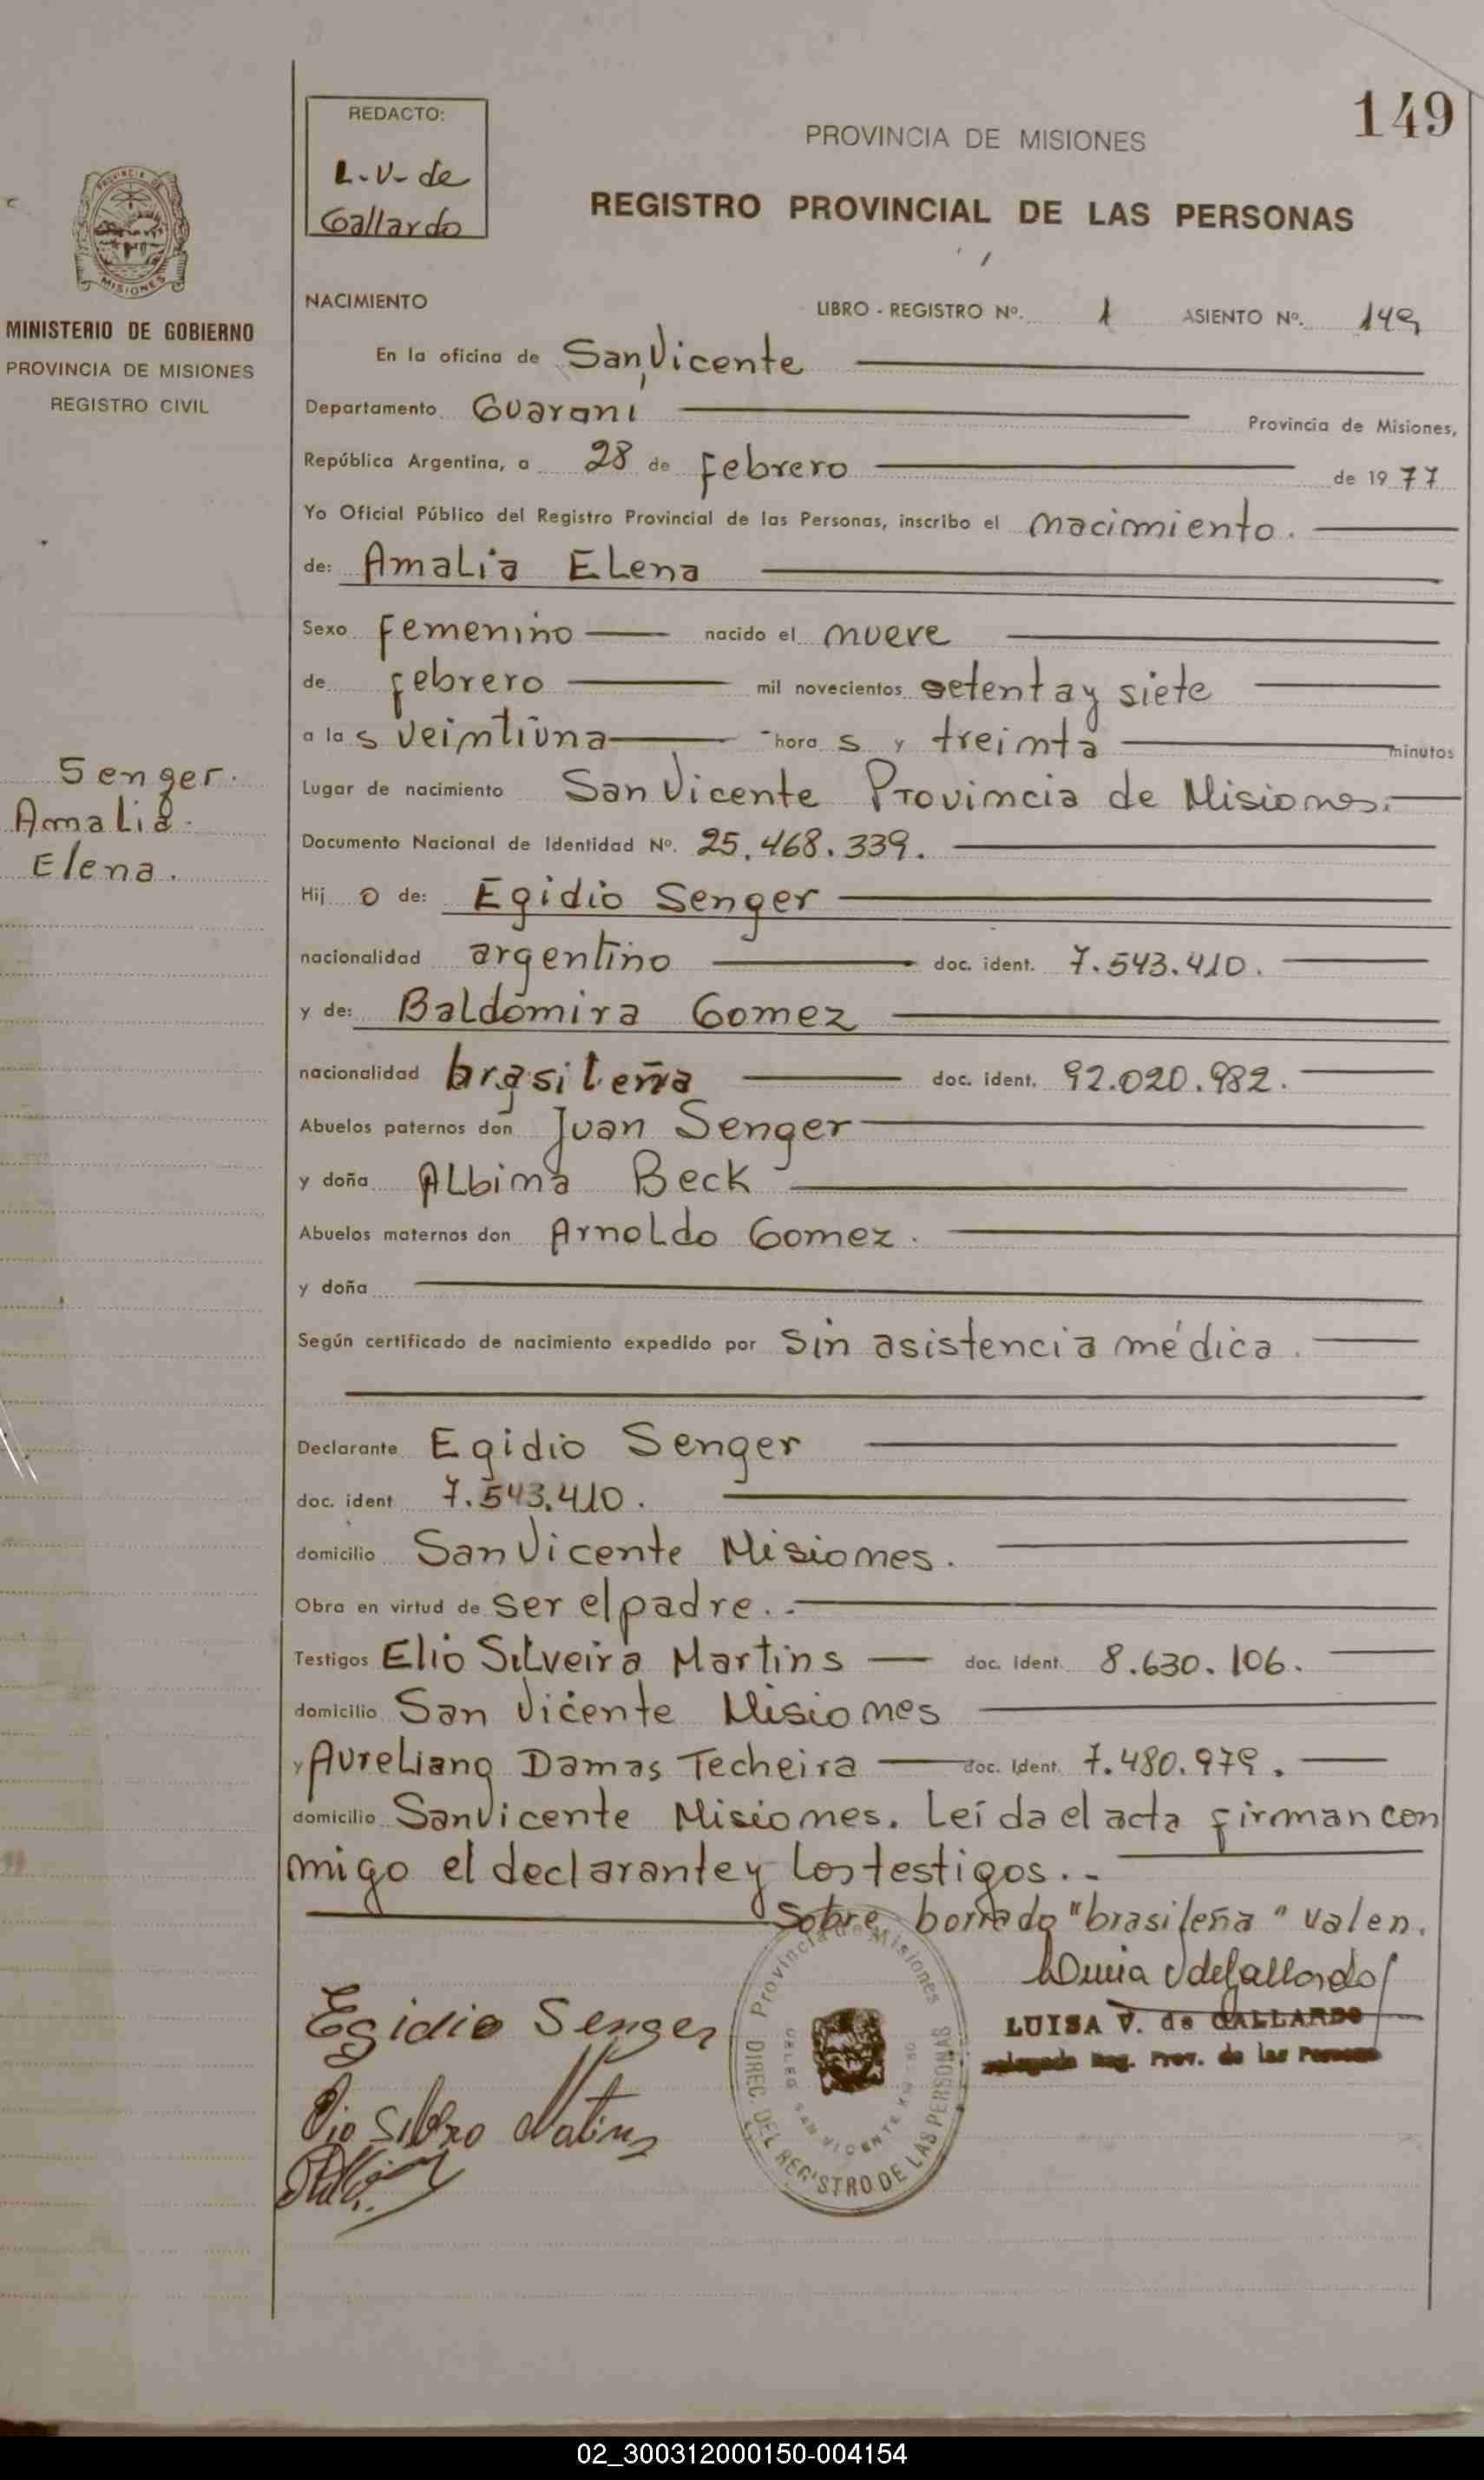 149
REDACTO:
L.V. de
Gallardo
PROVINCIA DE MISIONES
REGISTRO PROVINCIAL DE LAS PERSONAS
MINISTERIO DE GOBIERNO
PROVINCIA DE MISIONES
REGISTRO CIVIL
NACIMIENTO
LIBRO - REGISTRO Nº. 1 ASIENTO Nº. 149
En la oficina de San Vicente
Departamento Guaraní Provincia de Misiones,
República Argentina, a 28 de febrero de 1977
Yo Oficial Público del Registro Provincial de las Personas, inscribo el nacimiento.
de: Amalia Elena
Sexo femenino nacido el nueve
de febrero mil novecientos setenta y siete
a las veintiuna horas y treinta minutos
Lugar de nacimiento San Vicente Provincia de Misiones.
Senger.
Amalia.
Elena.
Documento Nacional de Identidad Nº. 25.468.339.
Hijo de: Egidio Senger
nacionalidad argentino doc. ident. 7.543.410.
y de: Baldomira Gomez
nacionalidad brasileña doc. ident. 92.020.982.
Abuelos paternos don Juan Senger
y doña Albina Beck
Abuelos maternos don Arnoldo Gomez.
y doña
Según certificado de nacimiento expedido por Sin asistencia médica.
Declarante Egidio Senger
doc. ident 7.543.410.
domicilio San Vicente Misiones.
Obra en virtud de ser el padre.
Testigos Elio Silveira Martins doc. ident. 8.630.106.
domicilio San Vicente Misiones
y Aureliano Damas Techeira doc. ident. 7.480.979.
domicilio San Vicente Misiones. Leída el acta firman con
migo el declarante y los testigos.
Sobre borrado "brasileña" valen.
Egidio Senger
LUISA V. de GALLARDO
Delegada Reg. Prov. de las Personas
Provincia de Misiones
DIREC. DEL REGISTRO DE LAS PERSONAS
SAN VICENTE
02_300312000150-004154